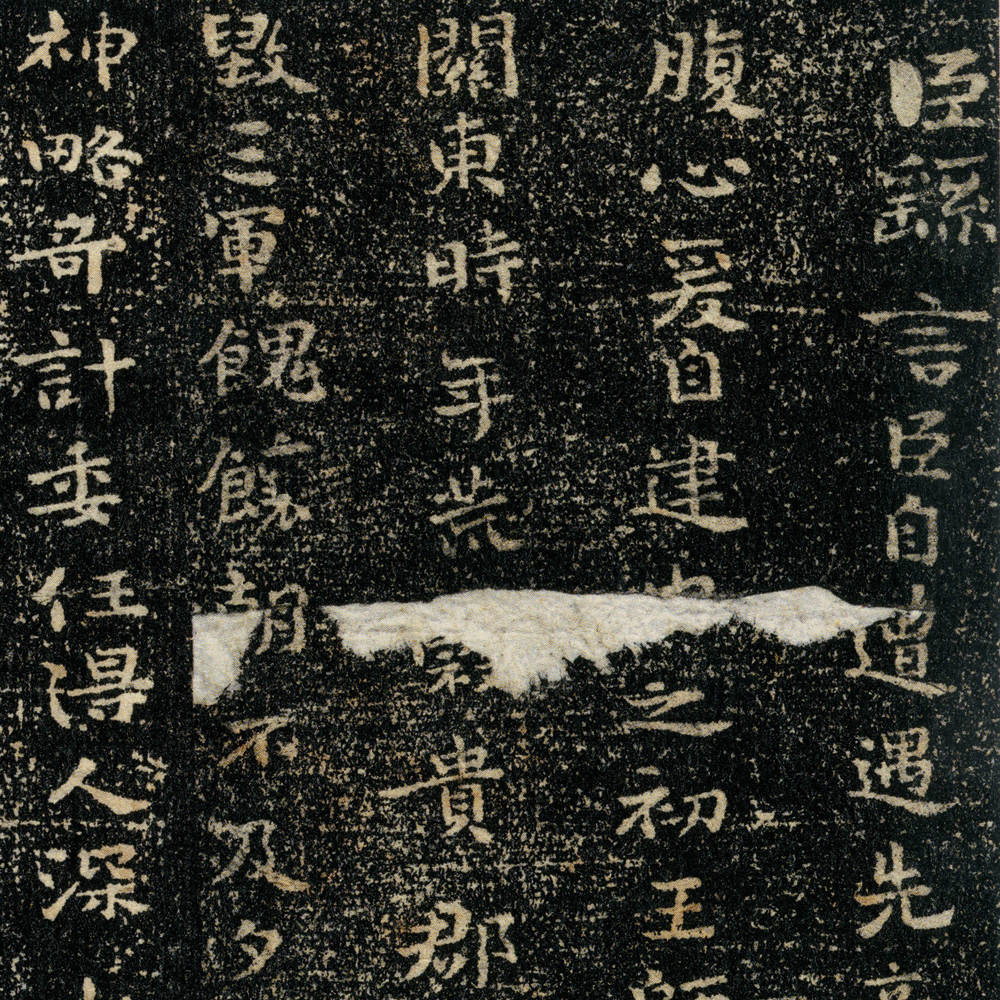 臣繇言臣自遭遇先
腹心爰自建之初王
關東時年荒貴郡
毀三軍餽饟朝不及夕
神略奇計委任得人深